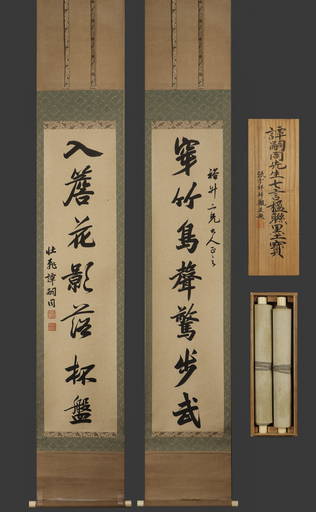 裕升二兄大人正之
穿竹鳥聲驚步武
入簷花影落杯盤
壯飛譚嗣同
譚嗣同先生七言楹聯墨寶